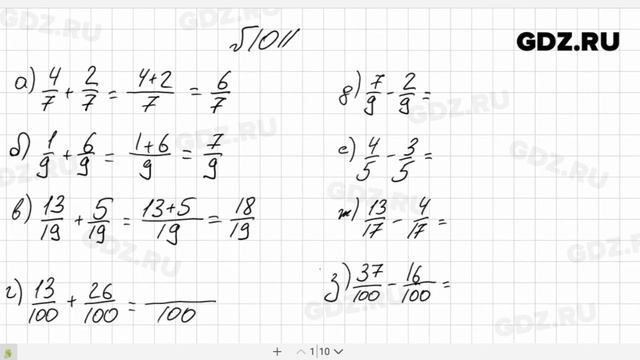 №1011
GDZ.RU
а) 4/7 + 2/7 = 4+2/7 = 6/7
б) 1/9 + 6/9 = 1+6/9 = 7/9
в) 13/19 + 5/19 = 13+5/19 = 18/19
г) 13/100 + 26/100 = /100
д) 7/9 - 2/9 =
е) 4/5 - 3/5 =
ж) 13/17 - 4/17 =
з) 37/100 - 16/100 =
1 | 10
GDZ.RU
GDZ.RU
GDZ.RU
GDZ.RU
GDZ.RU
GDZ.RU
GDZ.RU
GDZ.RU